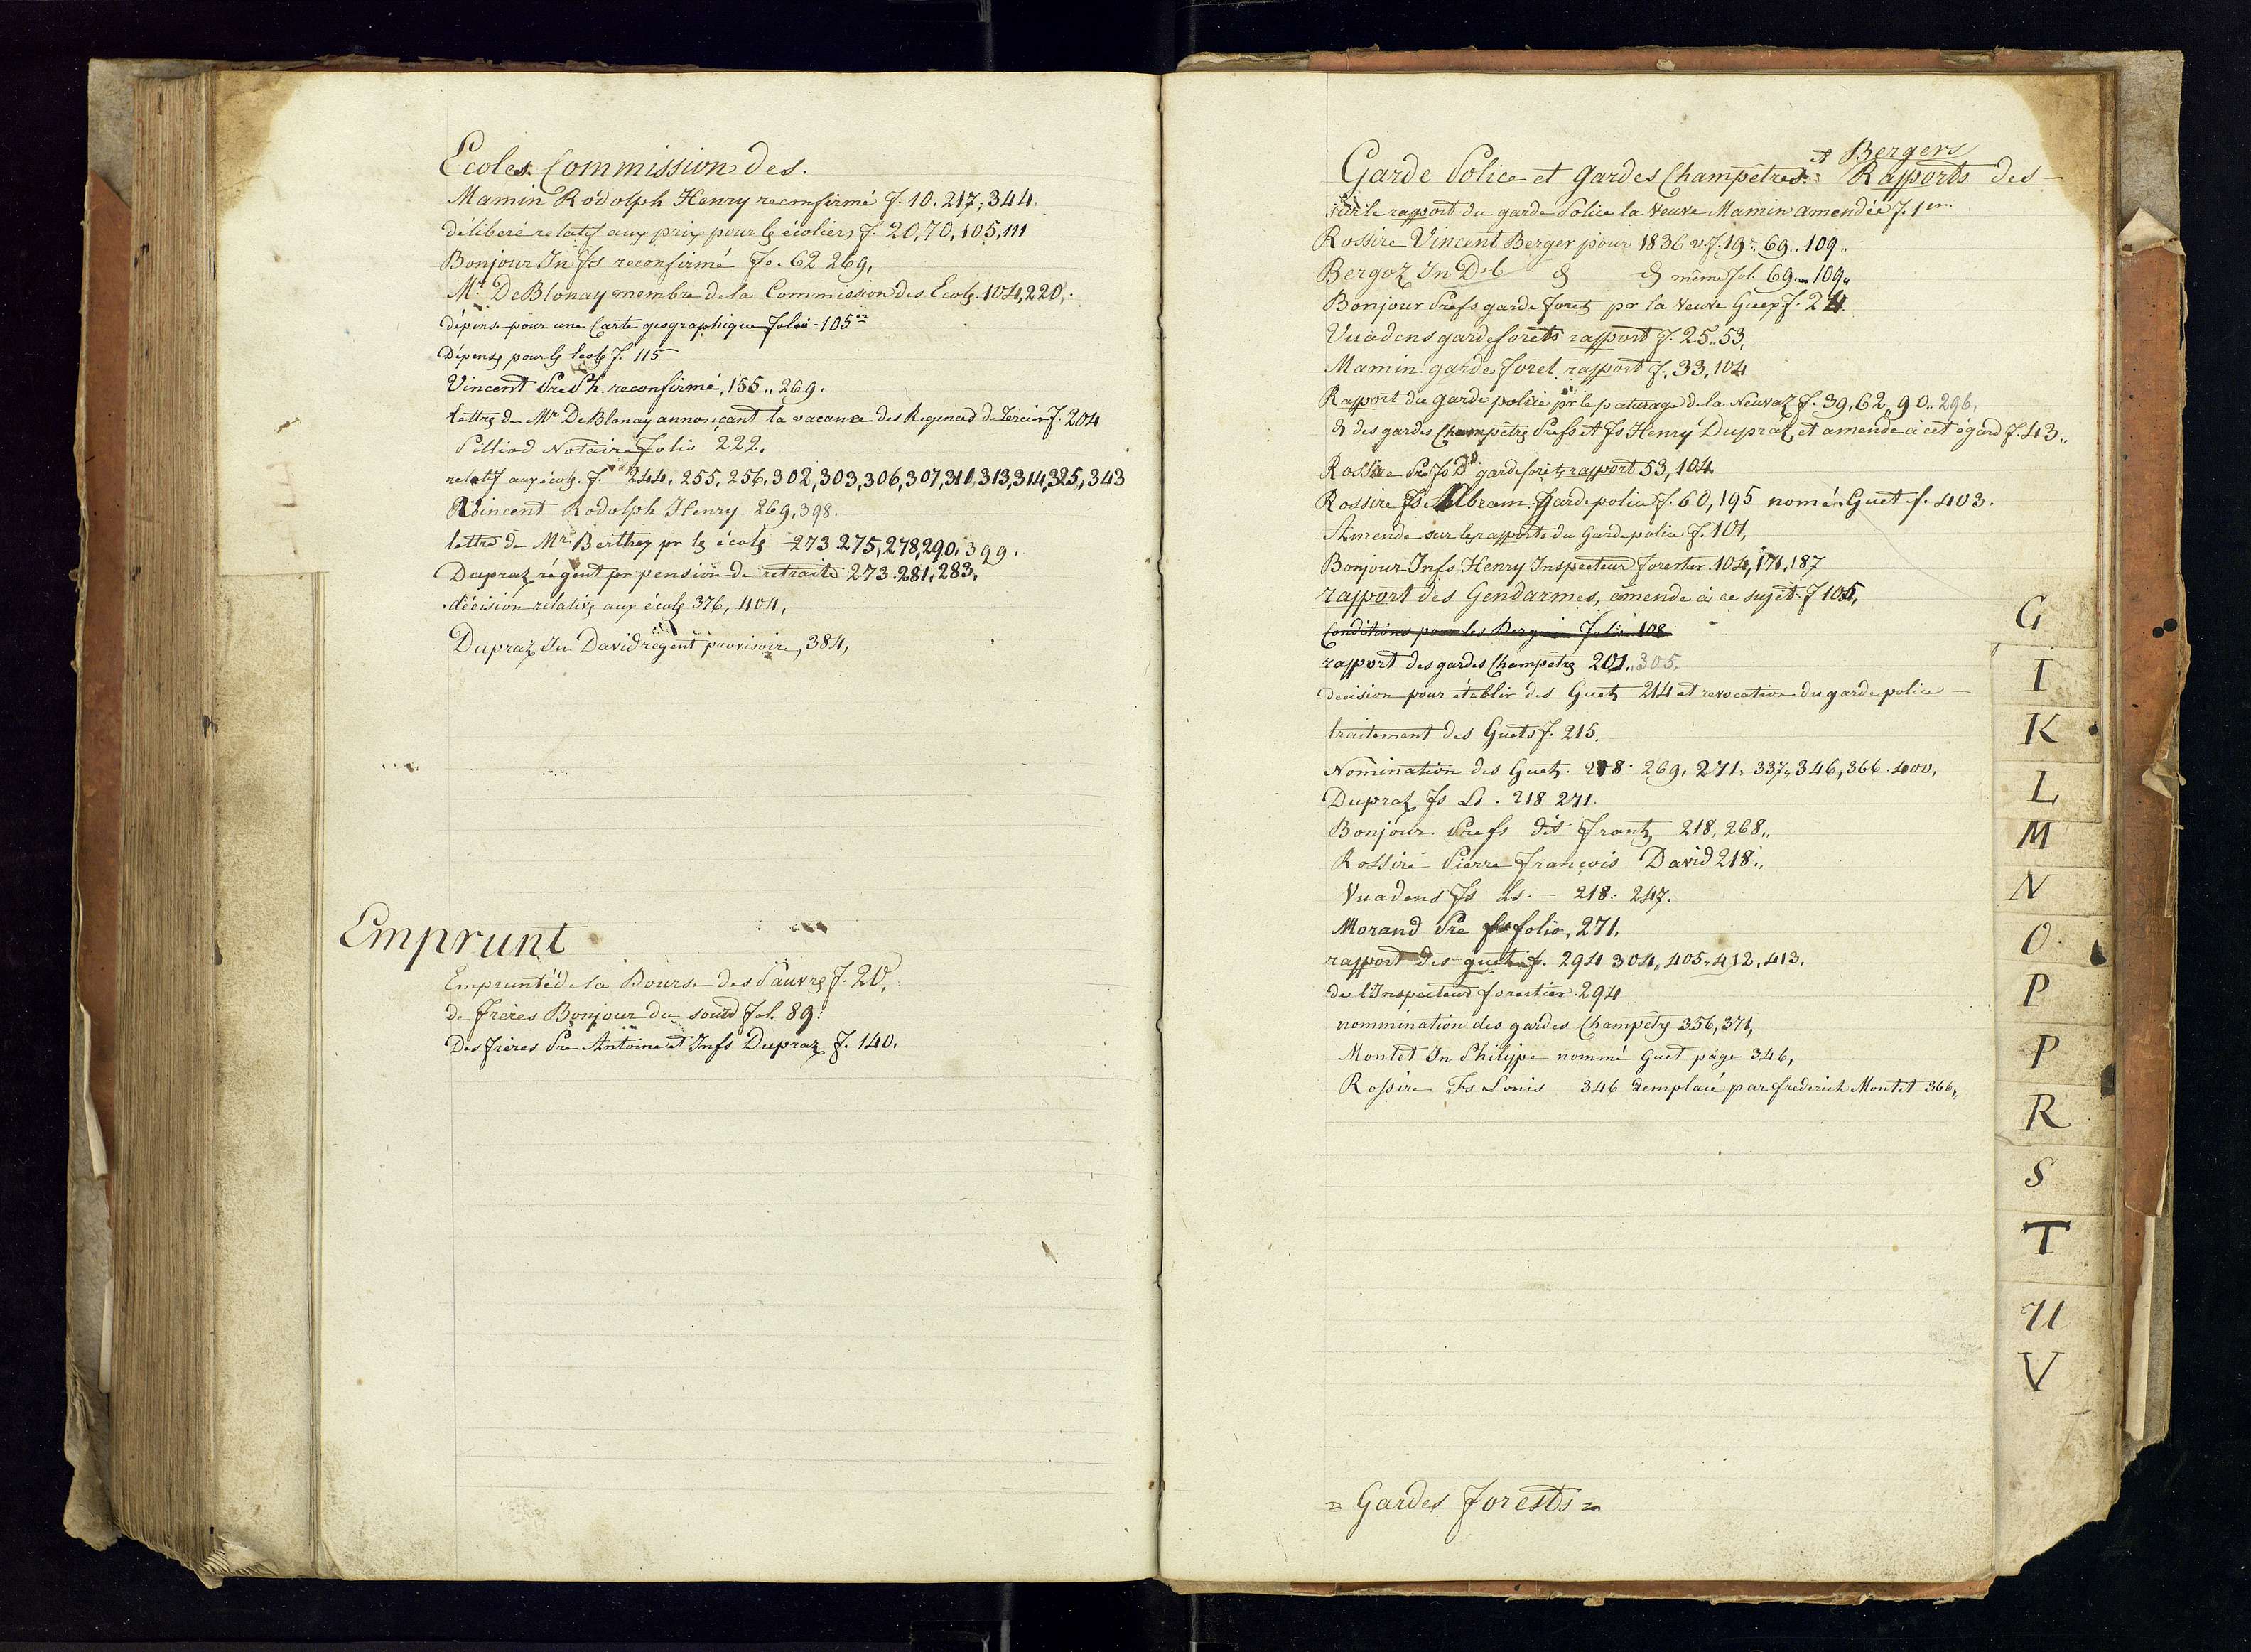 Ecoles Commission des.
Mamin Rodolph Henry reconfirmé f. 10. 217, 344.
délibéré relatif aux prix pour ls écoliers f. 20, 70, 105, 111
Bonjour Jn Fs reconfirmé fo. 62 269,
Mr DeBlonay membre de la Commission des Ecols. 104, 220,.
dépense pour une Carte géographique folio 105
Dépenss pour ls Ecols f. 115
Vincent Pre Ph. reconfirmé, 155,, 269.
lettre de Mr DeBlonay annonçant la vacance des Regences de f. 204
Pilliod Notaire folio 222.
relatif aux écols. f. 244, 255, 256, 302, 303, 306, 307, 311, 313, 314, 325, 343
Vincent Rodolph Henry 269, 398.
lettre de Mr Berthey pr ls écols 273 275, 278, 290, 399.
Dupraz régent pr pension de retraite 273. 281, 283,
décision relativs aux écols 376, 404,
Dupraz Jn David régent provisoire, 384,
Emprunt
Emprunté de la Bourse des Pauvrs f. 20,
de frères Bonjour du sourd fol. 89.
Des frères Pre Antoine et Jn fs Dupraz f. 140.
et Bergers
Garde Police et Gardes Champêtres. Rapports des
sur le rapport du garde Police la Veuve Mamin amendée f. 1er.
Rossire Vincent Berger pour 1836 v. f. 19. 69.. 109..
Bergoz Jn Dl d d même fol. 69 109,,
Bonjour Pre fs garde foret pr la Veuve Guex f. 24
Vuadens garde forets rapport f. 25.. 53,
Mamin garde foret rapport f. 33, 104
Rapport du garde police pr le paturage de la Neuvaz f. 39, 62,, 90.. 296,
d des gardes Champêtrs Pre fs et Fs Henry Dupraz, et amende à cet égard f. 43..
Rossire Pre Fs Dd garde forêts rapport 53, 104
Rossire Fs Abram. garde police f. 60, 195 nomé Guet f. 403.
Amende sur les rapports du Garde police f. 101,
Bonjour Jn fs Henry Inspecteur forestier. 104, 171, 187
rapport des Gendarmes, amende à ce sujet f 105,
Conditions pour les Bergers folio 108
rapport des gardes Champêtrs 201,, 305,
décision pour établir des Guets 214 et revocation du garde police
traitement des Guets f. 215.
Nomination des Guets. 218. 269, 271, 337, 346, 366. 400,
Dupraz Fs Ls. 218 271.
Bonjour Pre fs dit frantz 218, 268,,
Rossire Pierre François David 218,,
Vuadens Fs Ls. - 218. 247.
Morand Pre folio, 271,
rapport des guets f. 294 304,, 405, 412, 413,
de l'Inspecteur forestier. 294
nommination des gardes Champêtrs 356, 371,
Montet Jn Philippe nommé Guet page 346,
Rossire Fs Louis 346 remplacé par frederich Montet 366,
= Gardes forests =
G
I
K
L
M
N
O
P
P
R
S
T
U
V